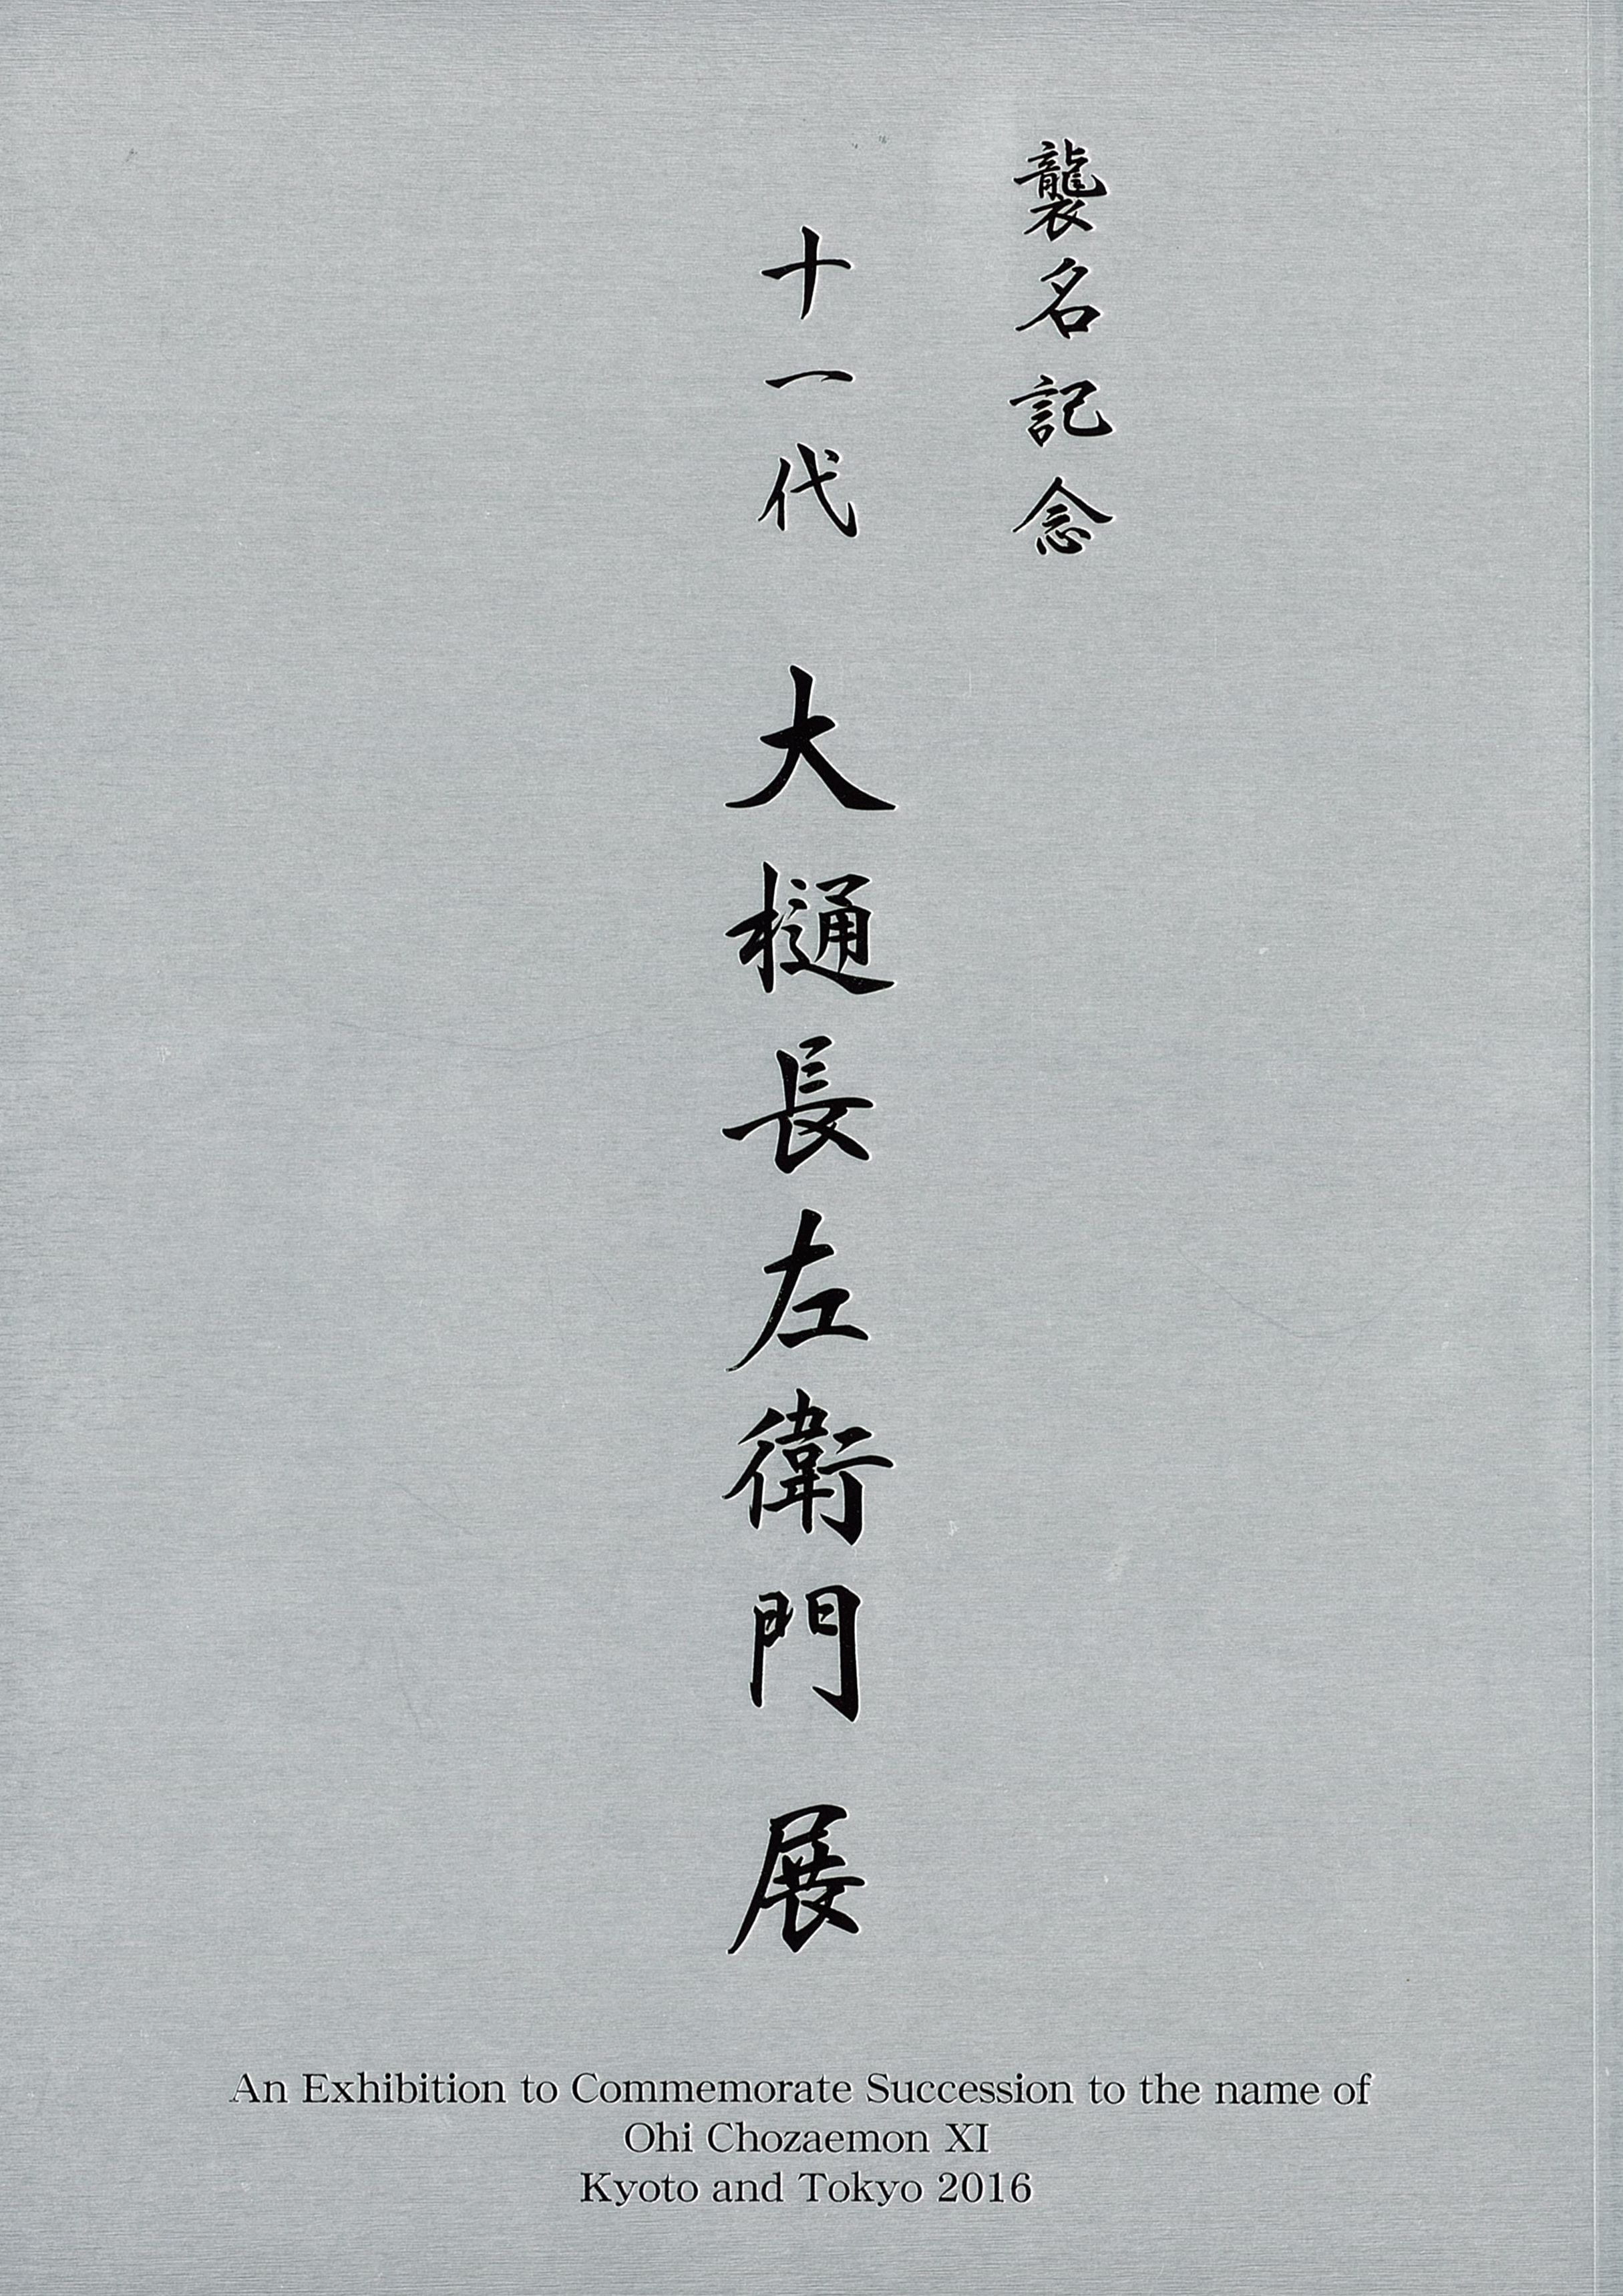 襲名記念
十一代 大樋長左衛門 展
An Exhibition to Commemorate Succession to the name of
Ohi Chozaemon XI
Kyoto and Tokyo 2016